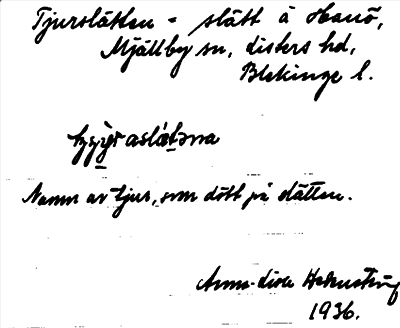 Tjurslätten = slätt å Hanö,
Mjällby sn, Listers hd,
Blekinge l.
Namn av tjur, som dött på slätten.
Anna-Lisa
1936.